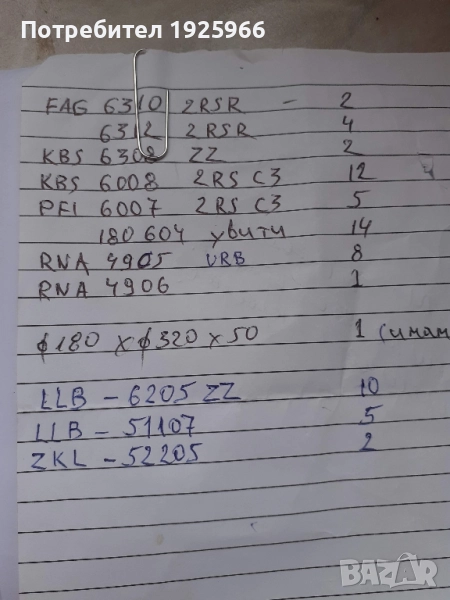 Потребител 1925966
FAG 6310 2RSR - 2
6312 2RSR 4
KBS 6308 ZZ 2
KBS 6008 2RS C3 12
PFI 6007 2RS C3 5
180 604 увити 14
RNA 4905 URB 8
RNA 4906 1
ϕ180 x ϕ320 x 50 1 (имам
LLB - 6205 ZZ 10
LLB - 51107 5
ZKL - 52205 2
BAZAR